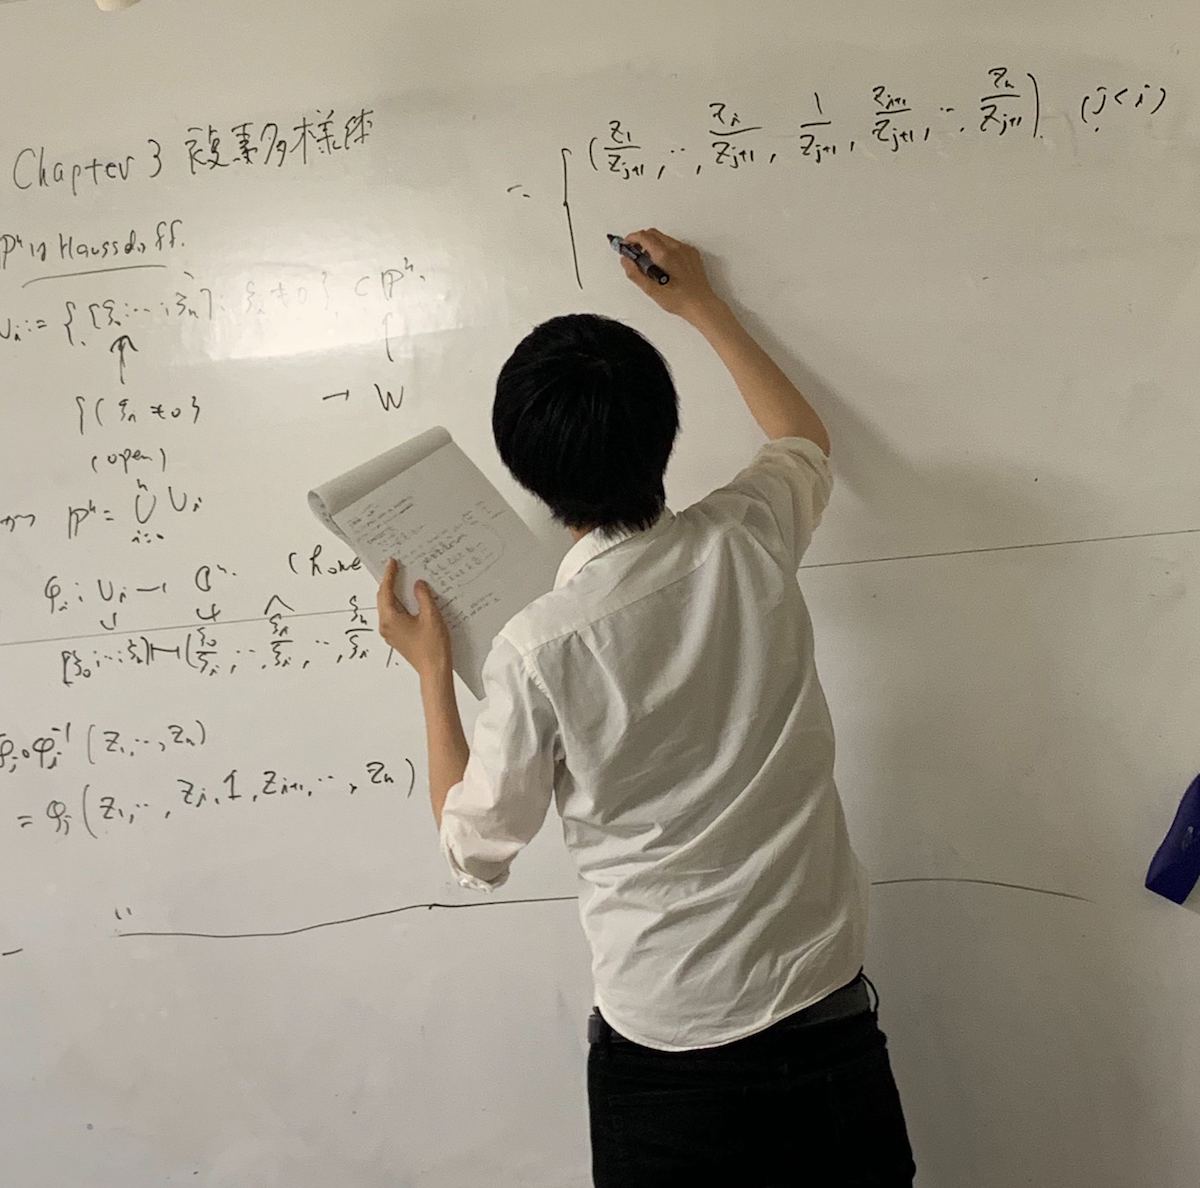 Chapter 3 複素多様体
Pⁿ は Haussdorff.
Uᵢ := { [ξ₀: … :ξₙ] ; ξᵢ ≠ 0 } ⊂ Pⁿ.
{( ξᵢ ≠ 0 } → W
(open)
Pⁿ = ∪ⁿᵢ₌₀ Uᵢ
φᵢ : Uᵢ → ℂⁿ. (home
[ξ₀: … :ξₙ] ↦ (ξ₀/ξᵢ, …, ξᵢ/ξᵢ^, …, ξₙ/ξᵢ).
φⱼ∘φᵢ⁻¹ (z₁, …, zₙ)
= φⱼ (z₁, …, zᵢ, 1, zᵢ₊₁, …, zₙ)
= { (z₁/zⱼ₊₁, …, zᵢ/zⱼ₊₁, 1/zⱼ₊₁, zᵢ₊₁/zⱼ₊₁, …, zₙ/zⱼ₊₁). (j < i)